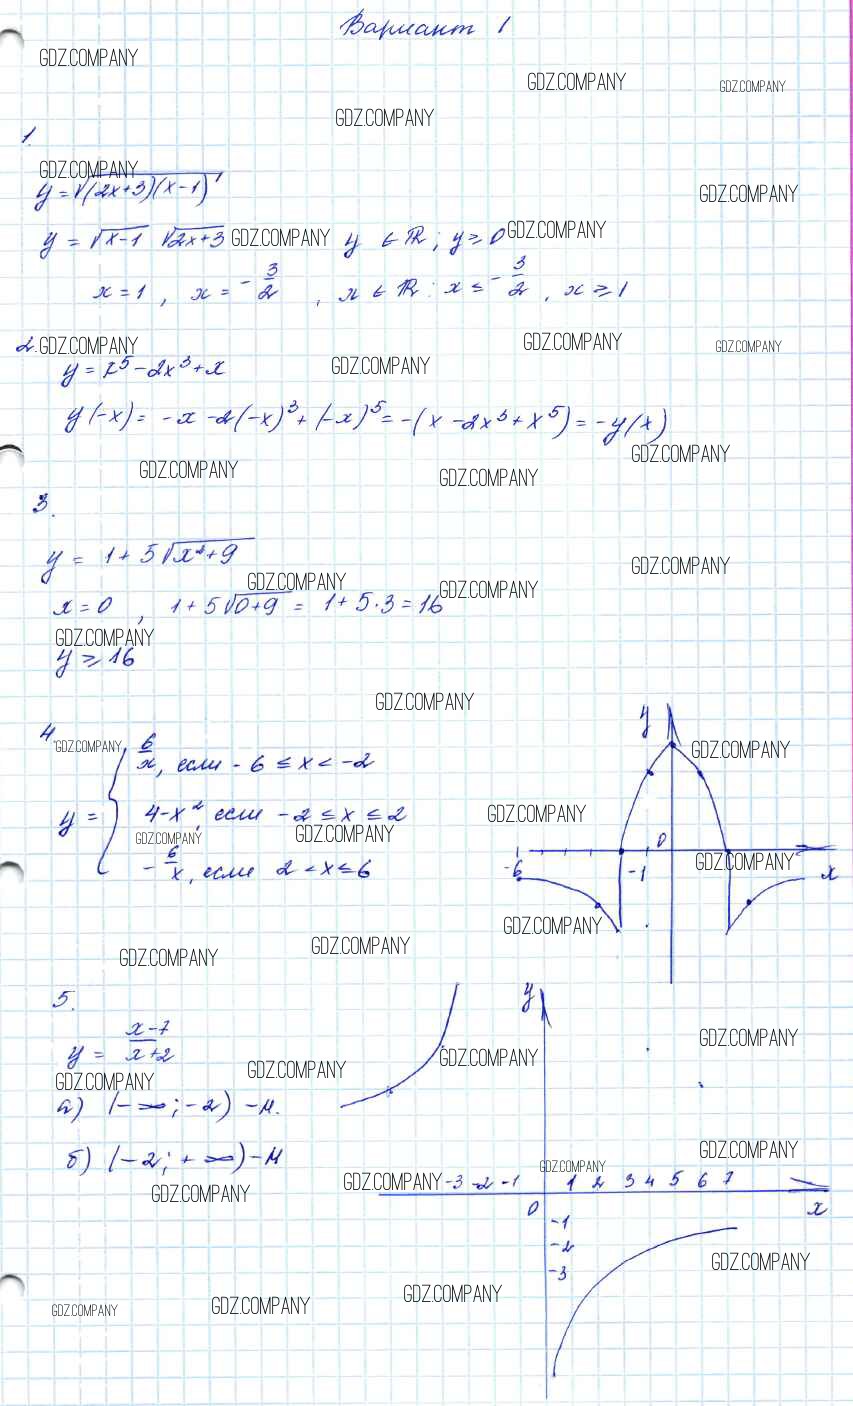 Вариант 1
GDZ.COMPANY
GDZ.COMPANY
GDZ.COMPANY
GDZ.COMPANY
1.
GDZ.COMPANY
y = √(2x+3)(x-1)
GDZ.COMPANY
y = √x-1 √2x+3 GDZ.COMPANY y ∈ ℝ; y ≥ 0 GDZ.COMPANY
x = 1, x = -3/2, x ∈ ℝ: x ≤ -3/2, x ≥ 1
2. GDZ.COMPANY GDZ.COMPANY GDZ.COMPANY
y = x⁵ - 2x³ + x GDZ.COMPANY
y(-x) = -x - 2(-x)³ + (-x)⁵ = -(x - 2x³ + x⁵) = -y(x)
GDZ.COMPANY
GDZ.COMPANY GDZ.COMPANY
3.
y = 1 + 5√x²+9
GDZ.COMPANY
GDZ.COMPANY GDZ.COMPANY
x = 0, 1 + 5√0+9 = 1 + 5·3 = 16
GDZ.COMPANY
y ≥ 16
GDZ.COMPANY
4. GDZ.COMPANY
y = { 6/x, если -6 ≤ x < -2
4-x², если -2 ≤ x ≤ 2
GDZ.COMPANY GDZ.COMPANY
-6/x, если 2 < x ≤ 6
y
GDZ.COMPANY
GDZ.COMPANY
0
GDZ.COMPANY
-6 -1 x
GDZ.COMPANY
GDZ.COMPANY GDZ.COMPANY
5.
y = x-7/x+2
GDZ.COMPANY GDZ.COMPANY
а) (-∞; -2) -
б) (-2; +∞) -
GDZ.COMPANY
y
GDZ.COMPANY
GDZ.COMPANY
GDZ.COMPANY
GDZ.COMPANY
GDZ.COMPANY -3 -2 -1 1 2 3 4 5 6 7
0 x
-1
-2
-3
GDZ.COMPANY
GDZ.COMPANY
GDZ.COMPANY
GDZ.COMPANY